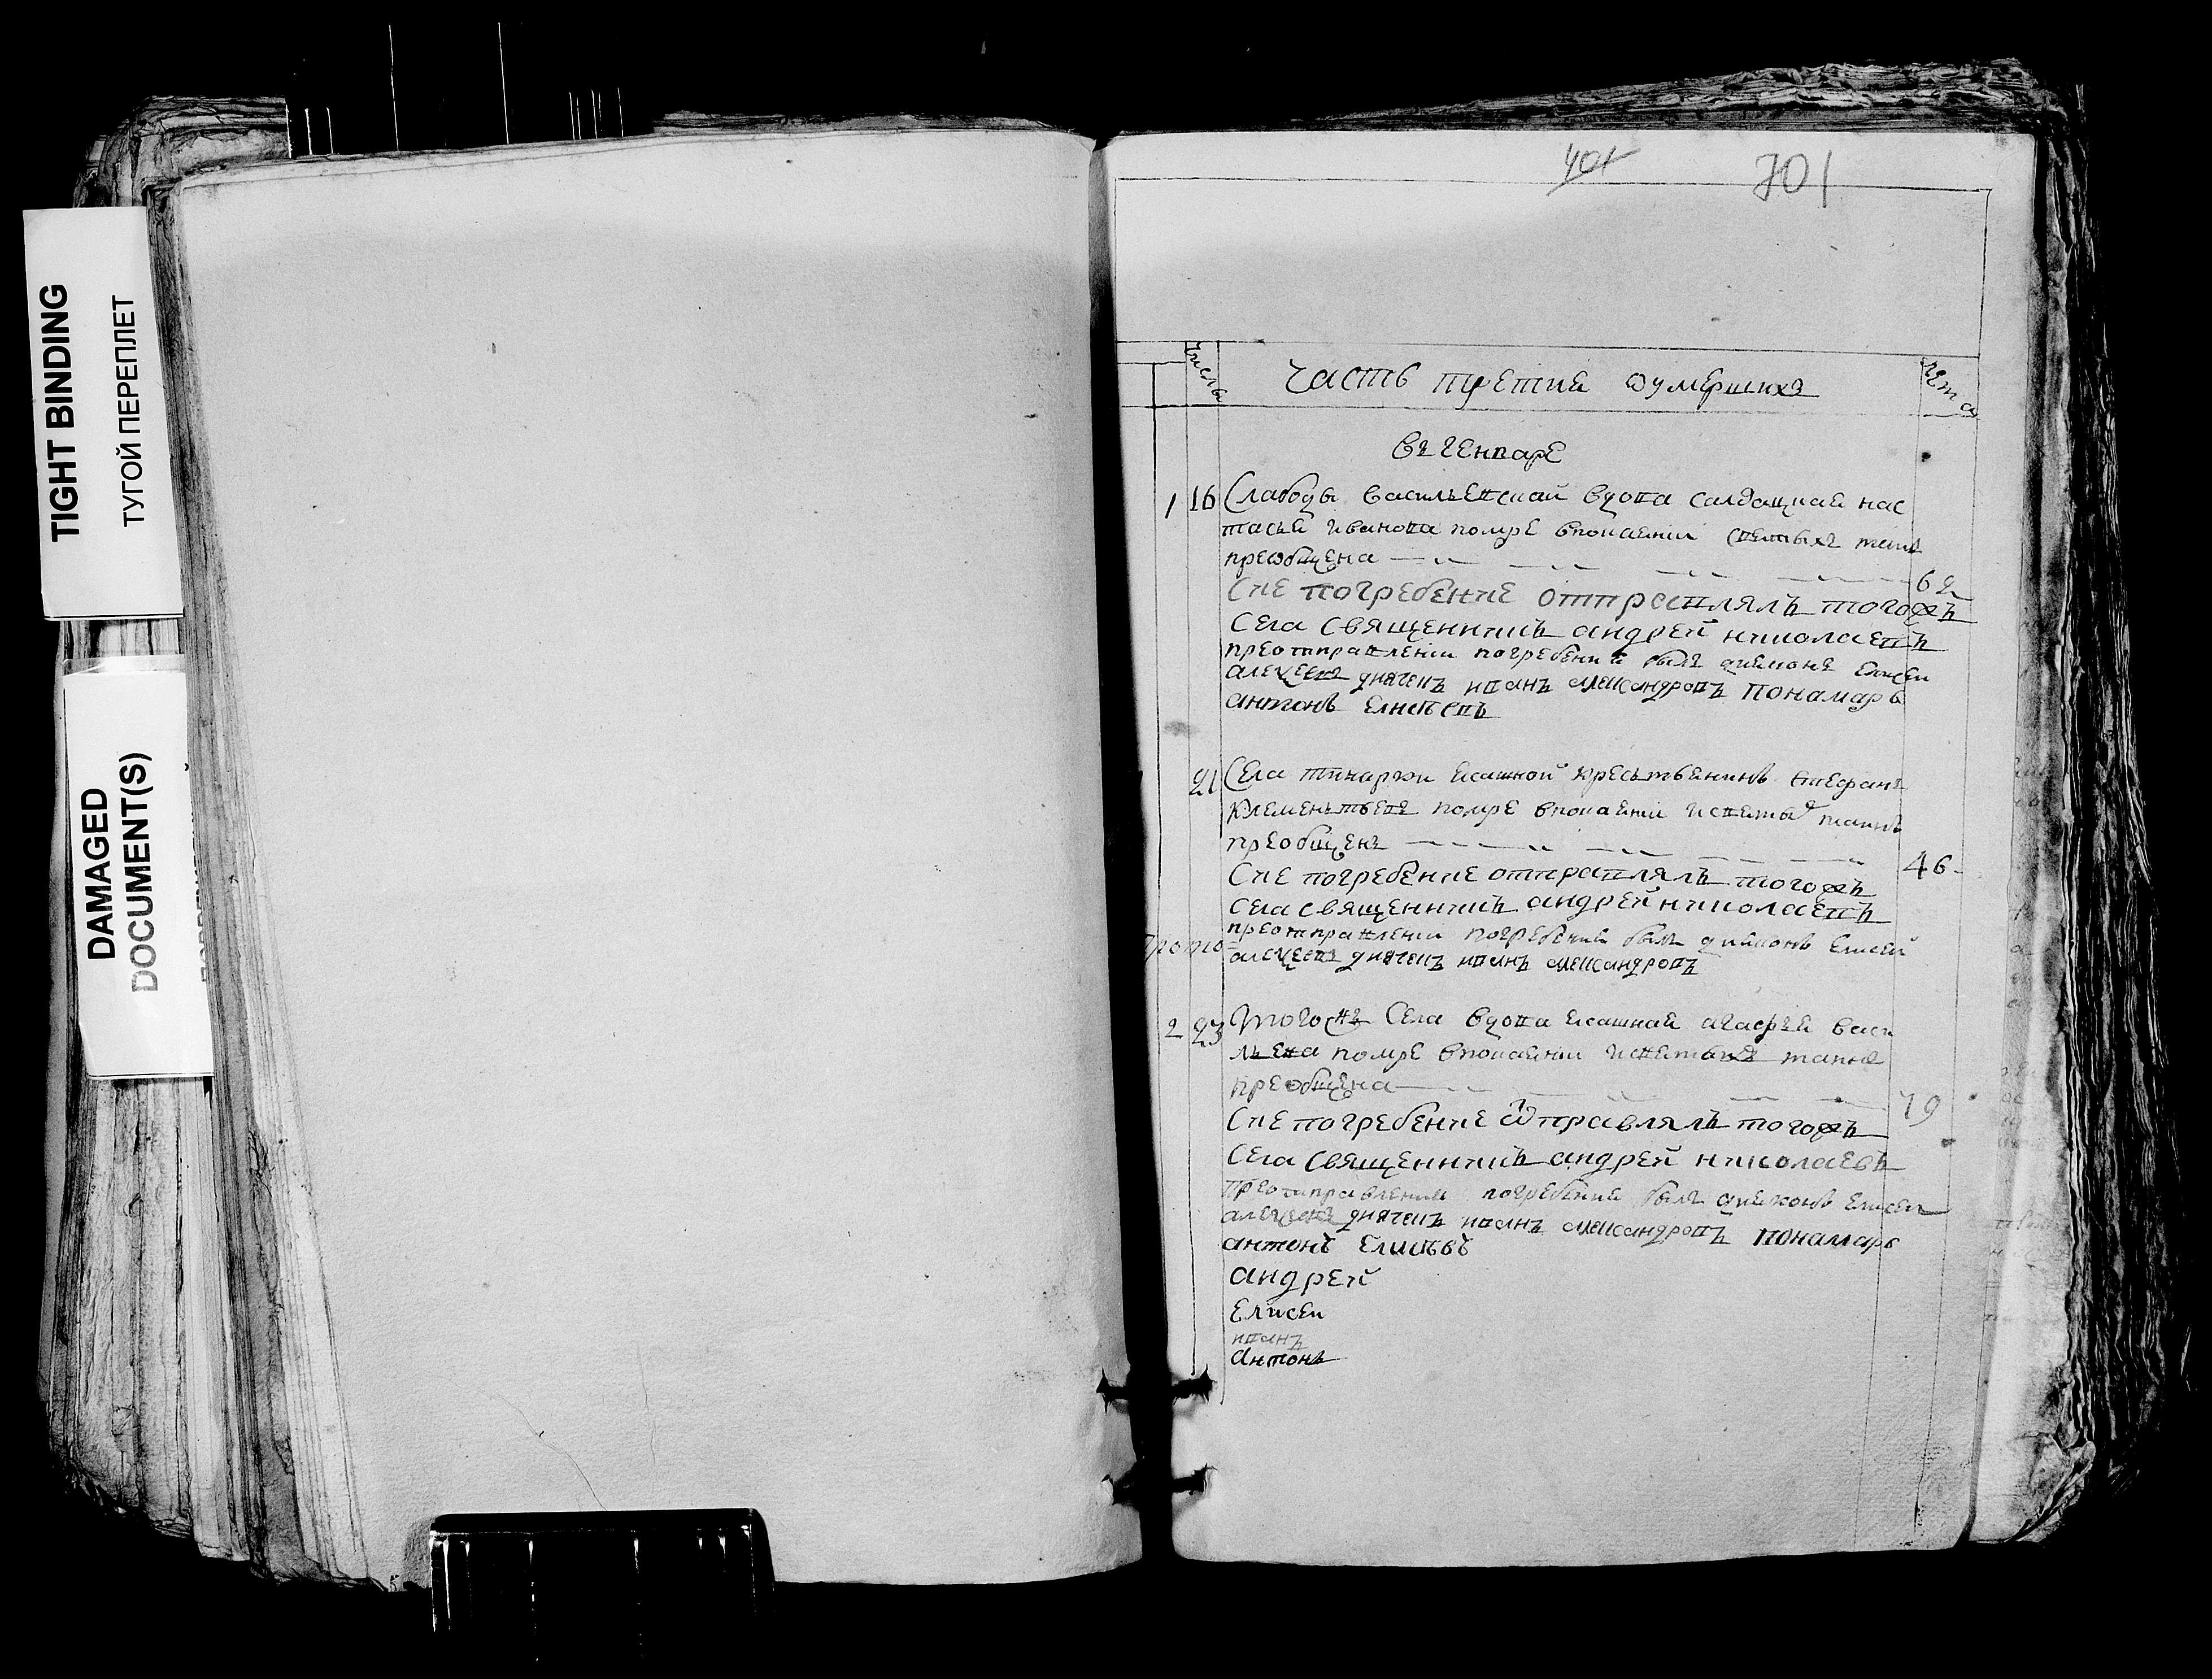 TIGHT BINDING
ТУГОЙ ПЕРЕПЛЕТ
DAMAGED
DOCUMENT(S)
401
701
числы
часть третие ѿумершихъ
лѣта
въ генваре
1 16 Слабоды василъевскай вдова салдацкая нас
тасья иванова помре впокаянии светыхъ таинъ
преѡбщена 62
Сие погребение отправлялъ тогожъ
села священникъ андрей николаевъ
преотправлении погребения былъ дияконъ Елисеи
алексеевъ дьячекъ иванъ александровъ понамарь
антонъ Елисѣевъ
21 Села ясашной кресьтвенинъ стефанъ
клеменьтьевъ помре впокаянии исветыхъ таинъ
преобщенъ 46
Сие погребение отправлялъ тогожъ
села священникъ андрей николаевъ
преотправлении погребения былъ дияконъ Елисей
прото
алексеевъ дьячекъ иванъ александровъ
2 23 Тогожъ Села вдова ясашная агафья васи
льева помре впокаянии исветыхъ таинъ
преобщена 79
Сие погребение ѿправлялъ тогожъ
села священникъ андрей николаевъ
преотправлении погребения былъ дияконъ Елисеи
алексеевъ дьячекъ иванъ александровъ понамарь
антонъ Елисѣвъ
андрей
Елисеи
иванъ
антонъ